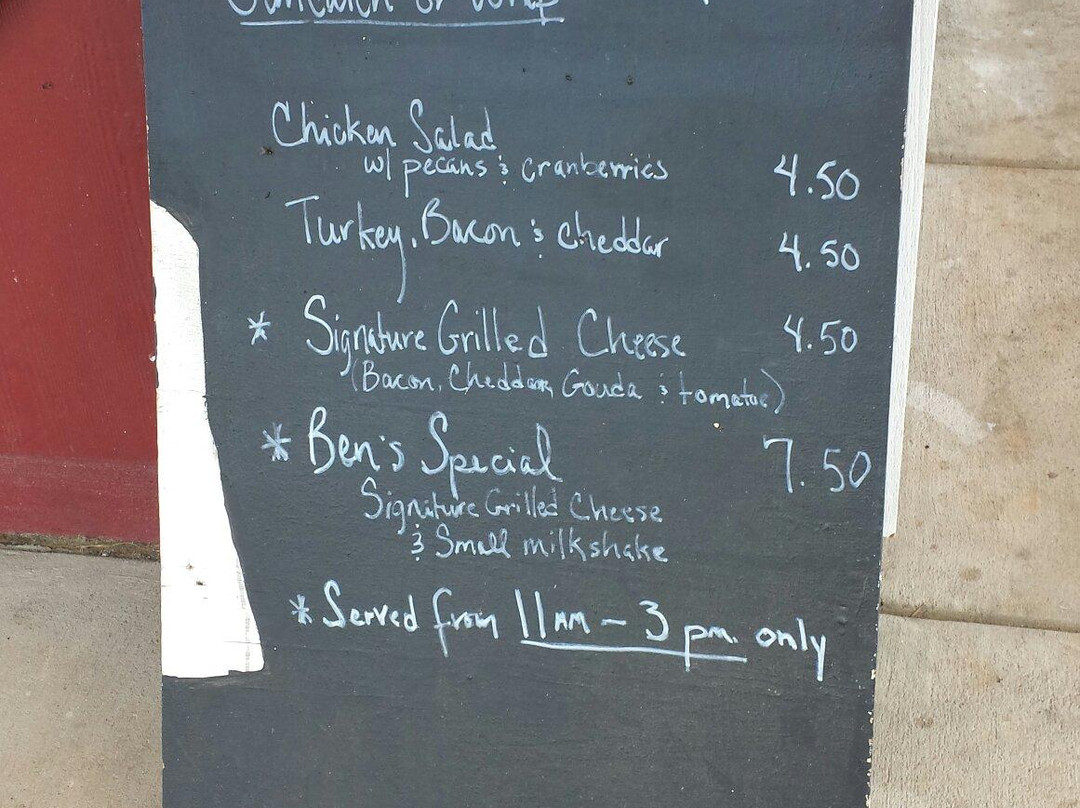 Sandwich or Wrap
Chicken Salad
w/ pecans & cranberries 4.50
Turkey, Bacon & cheddar 4.50
* Signature Grilled Cheese 4.50
(Bacon, Cheddar, Gouda & tomatoe)
* Ben's Special 7.50
Signature Grilled Cheese
& Small milkshake
* Served from 11 AM - 3 pm. only